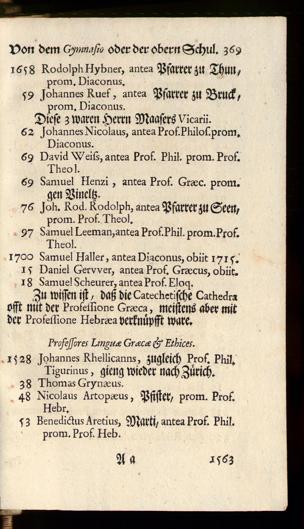 Von dem Gymnasio oder der obern Schul. 369
1658 Rodolph Hybner, antea Pfarrer zu Thun,
prom. Diaconus.
59 Johannes Ruef, antea Pfarrer zu Bruck,
prom. Diaconus.
Diese 3 waren Herrn Maasers Vicarii.
62 Johannes Nicolaus, antea Prof. Philos. prom.
Diaconus.
69 David Weiſs, antea Prof. Phil. prom. Prof.
Theol.
69 Samuel Henzi, antea Prof. Græc. prom.
gen Vineltz.
76 Joh. Rod. Rodolph, antea Pfarrer zu Seen,
prom. Prof. Theol.
97 Samuel Leeman, antea Prof. Phil. prom. Prof.
Theol.
1700 Samuel Haller, antea Diaconus, obiit 1715.
15 Daniel Gervver, antea Prof. Græcus, obiit.
18 Samuel Scheurer, antea Prof. Eloq.
Zu wissen ist, daß die Catechetische Cathedra
offt mit der Professione Græca, meistens aber mit
der Professione Hebræa verknüpfft ware.
Professores Linguæ Græcæ & Ethices.
1528 Johannes Rhellicanus, zugleich Prof. Phil.
Tigurinus, gieng wieder nach Zürich.
38 Thomas Grynæus.
48 Nicolaus Artopæus, Pfister, prom. Prof.
Hebr.
53 Benedictus Aretius, Marti, antea Prof. Phil.
prom. Prof. Heb.
A a 1563